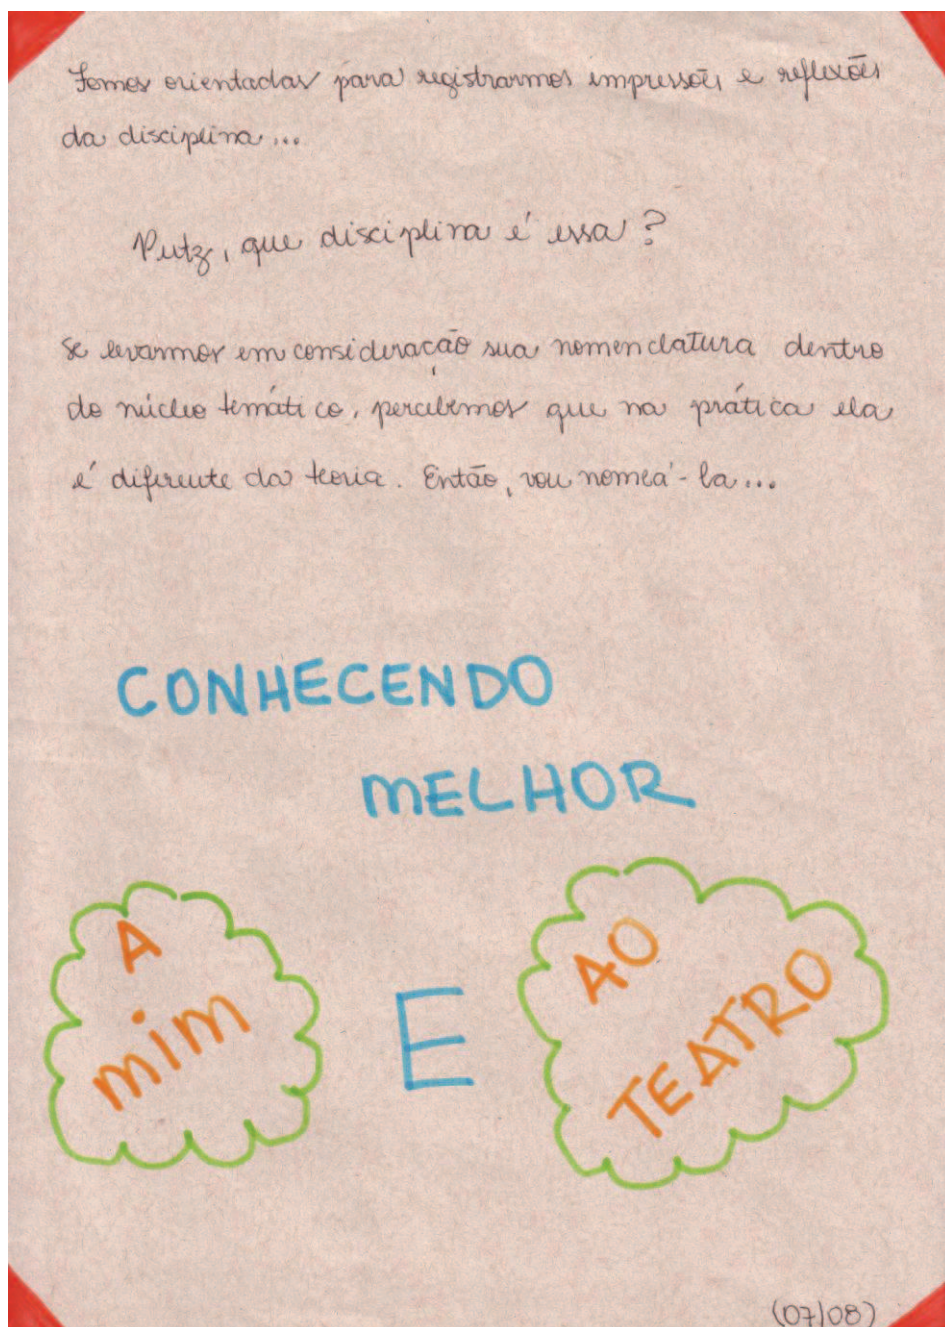 Fomos orientadas para registrarmos impressões e reflexões
da disciplina...
Putz, que disciplina é essa?
Se levarmos em consideração sua nomenclatura dentro
do núcleo temático, percebemos que na prática ela
é diferente da teoria. Então, vou nomeá-la...
CONHECENDO
MELHOR
A
mim
E
AO
TEATRO
(07/08)